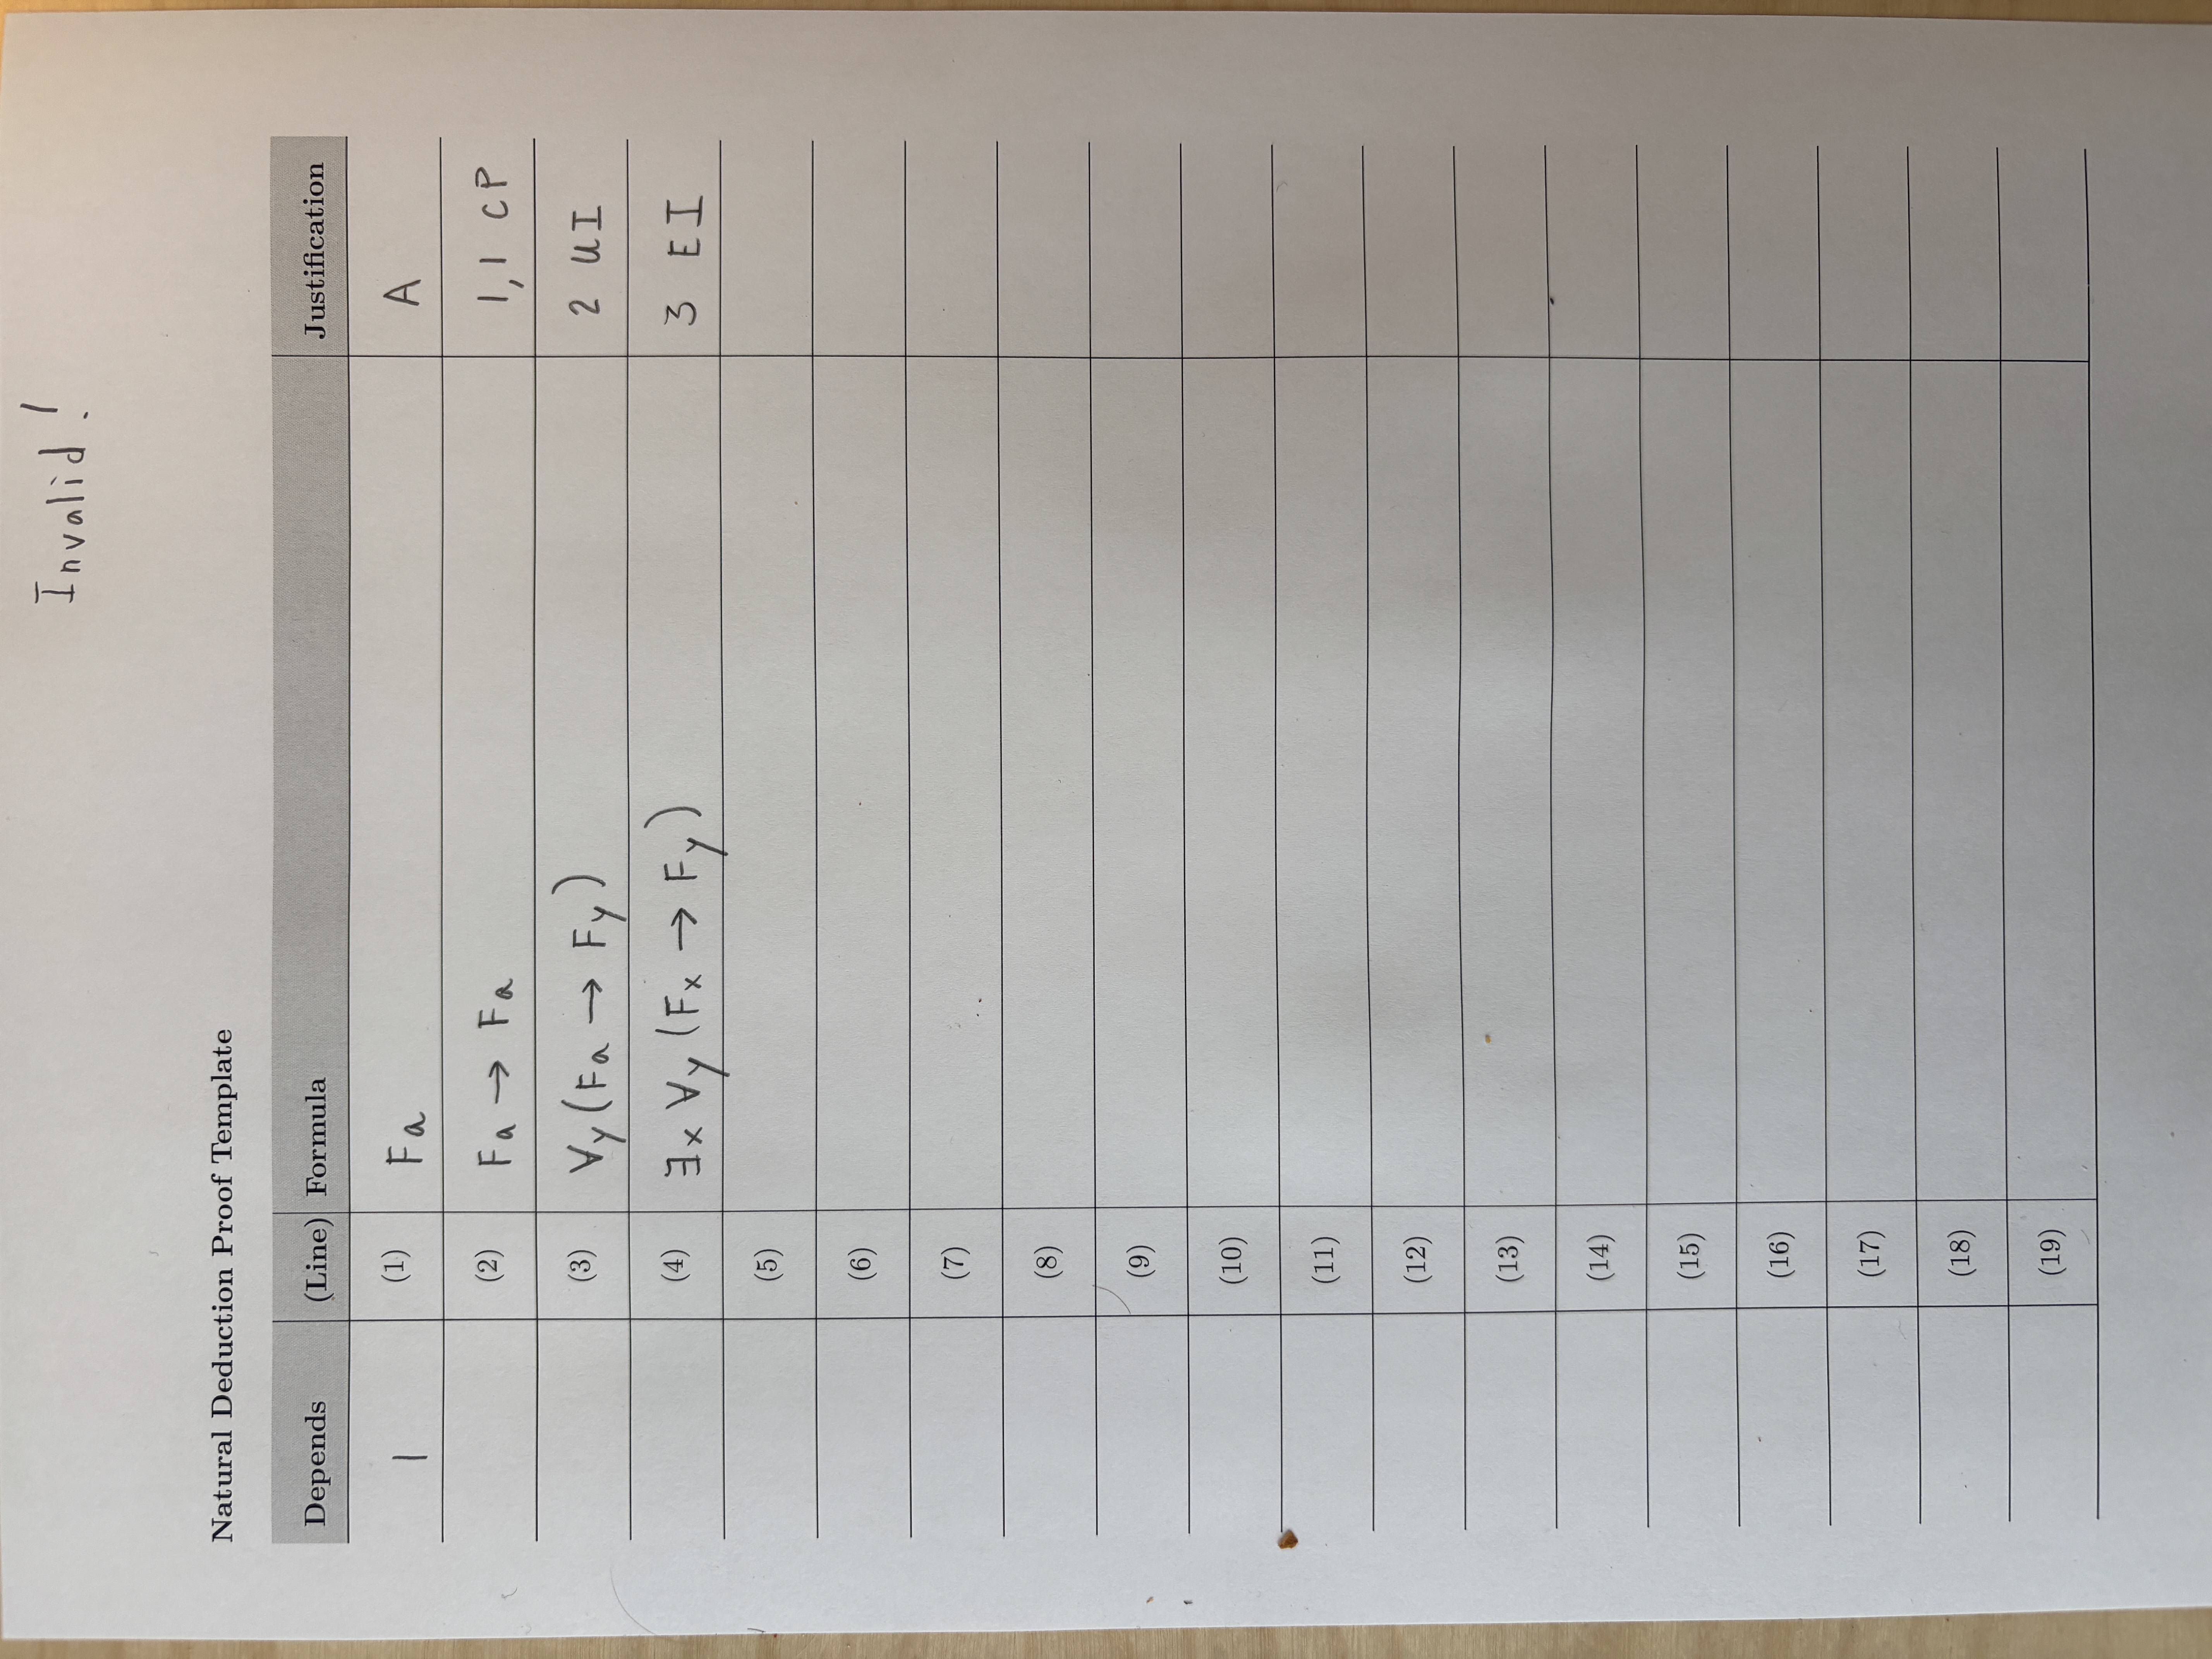 Invalid!
Natural Deduction Proof Template
Depends (Line) Formula Justification
1 (1) Fa A
(2) Fa → Fa 1,1 CP
(3) ∀y(Fa → Fy) 2 UI
(4) ∃x ∀y (Fx → Fy) 3 EI
(5)
(6)
(7)
(8)
(9)
(10)
(11)
(12)
(13)
(14)
(15)
(16)
(17)
(18)
(19)